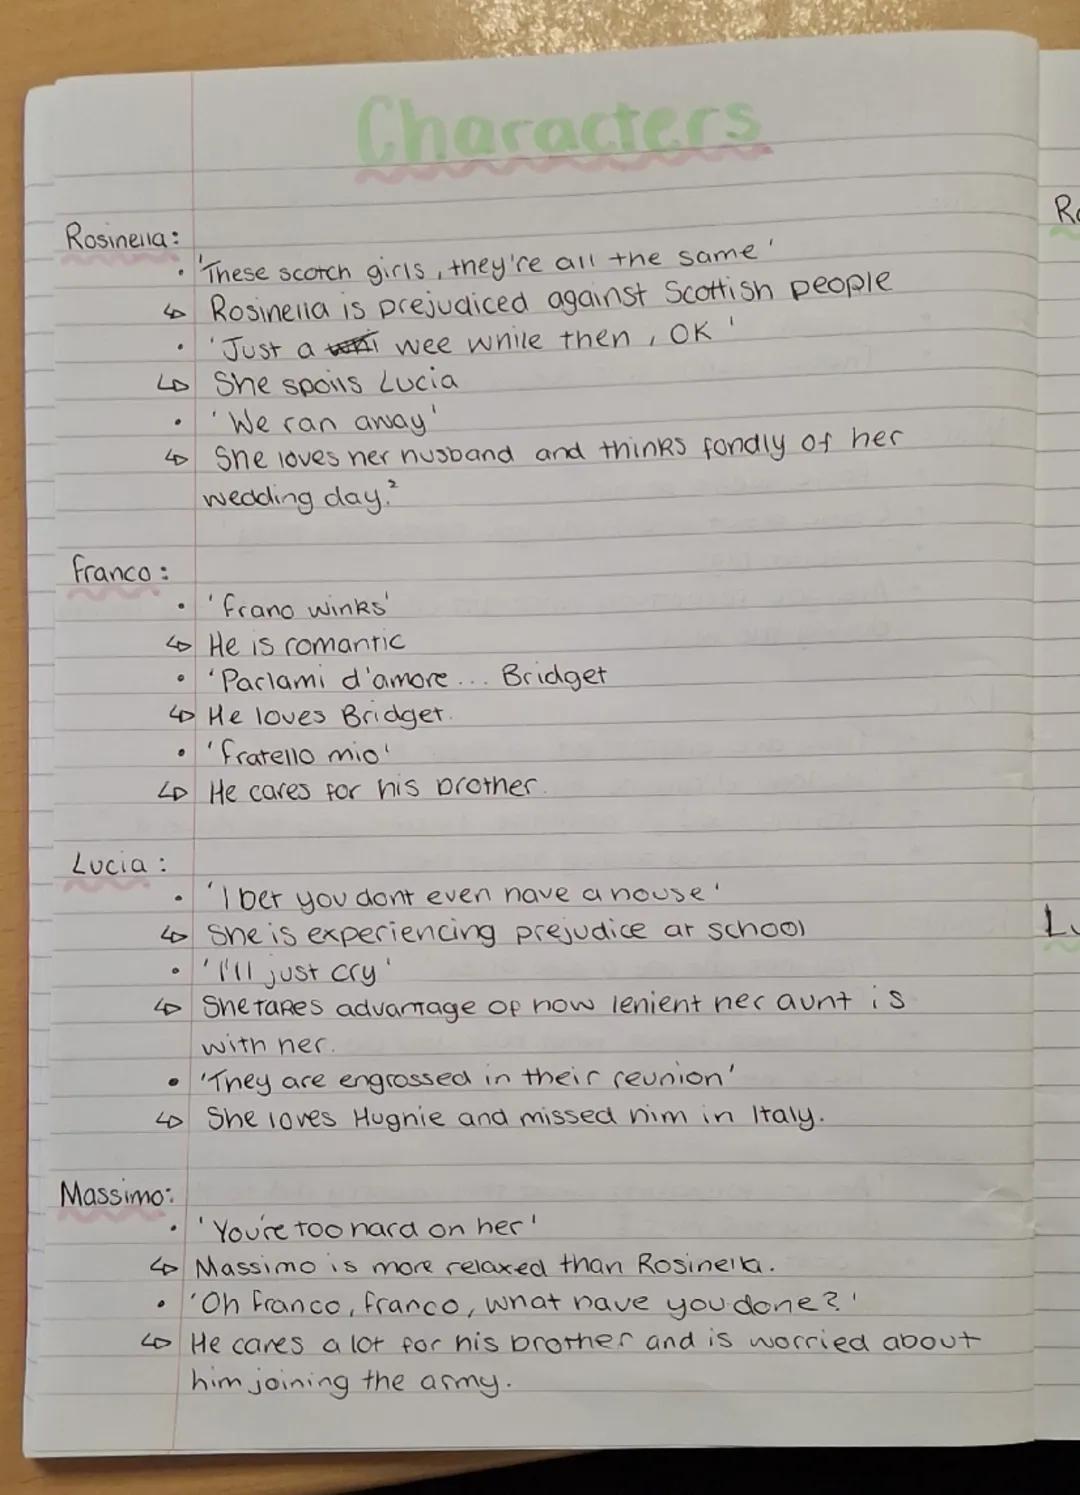 Characters
Rosinella:
• 'These scotch girls, they're all the same'
↳ Rosinella is prejudiced against Scottish people
• 'Just a wee while then, OK'
↳ She spoils Lucia
• 'We ran away'
↳ She loves her husband and thinks fondly of her
wedding day.²
Franco:
• 'Frano winks'
↳ He is romantic
• 'Parlami d'amore... Bridget
↳ He loves Bridget.
• 'Fratello mio'
↳ He cares for his brother.
Lucia:
• 'I bet you dont even have a house'
↳ She is experiencing prejudice at school
• 'I'll just cry'
↳ She takes advantage of how lenient her aunt is
with her.
• 'They are engrossed in their reunion'
↳ She loves Hughie and missed him in Italy.
Massimo:
• 'You're too hard on her'
↳ Massimo is more relaxed than Rosinella.
• 'Oh Franco, Franco, what have you done?'
↳ He cares a lot for his brother and is worried about
him joining the army.